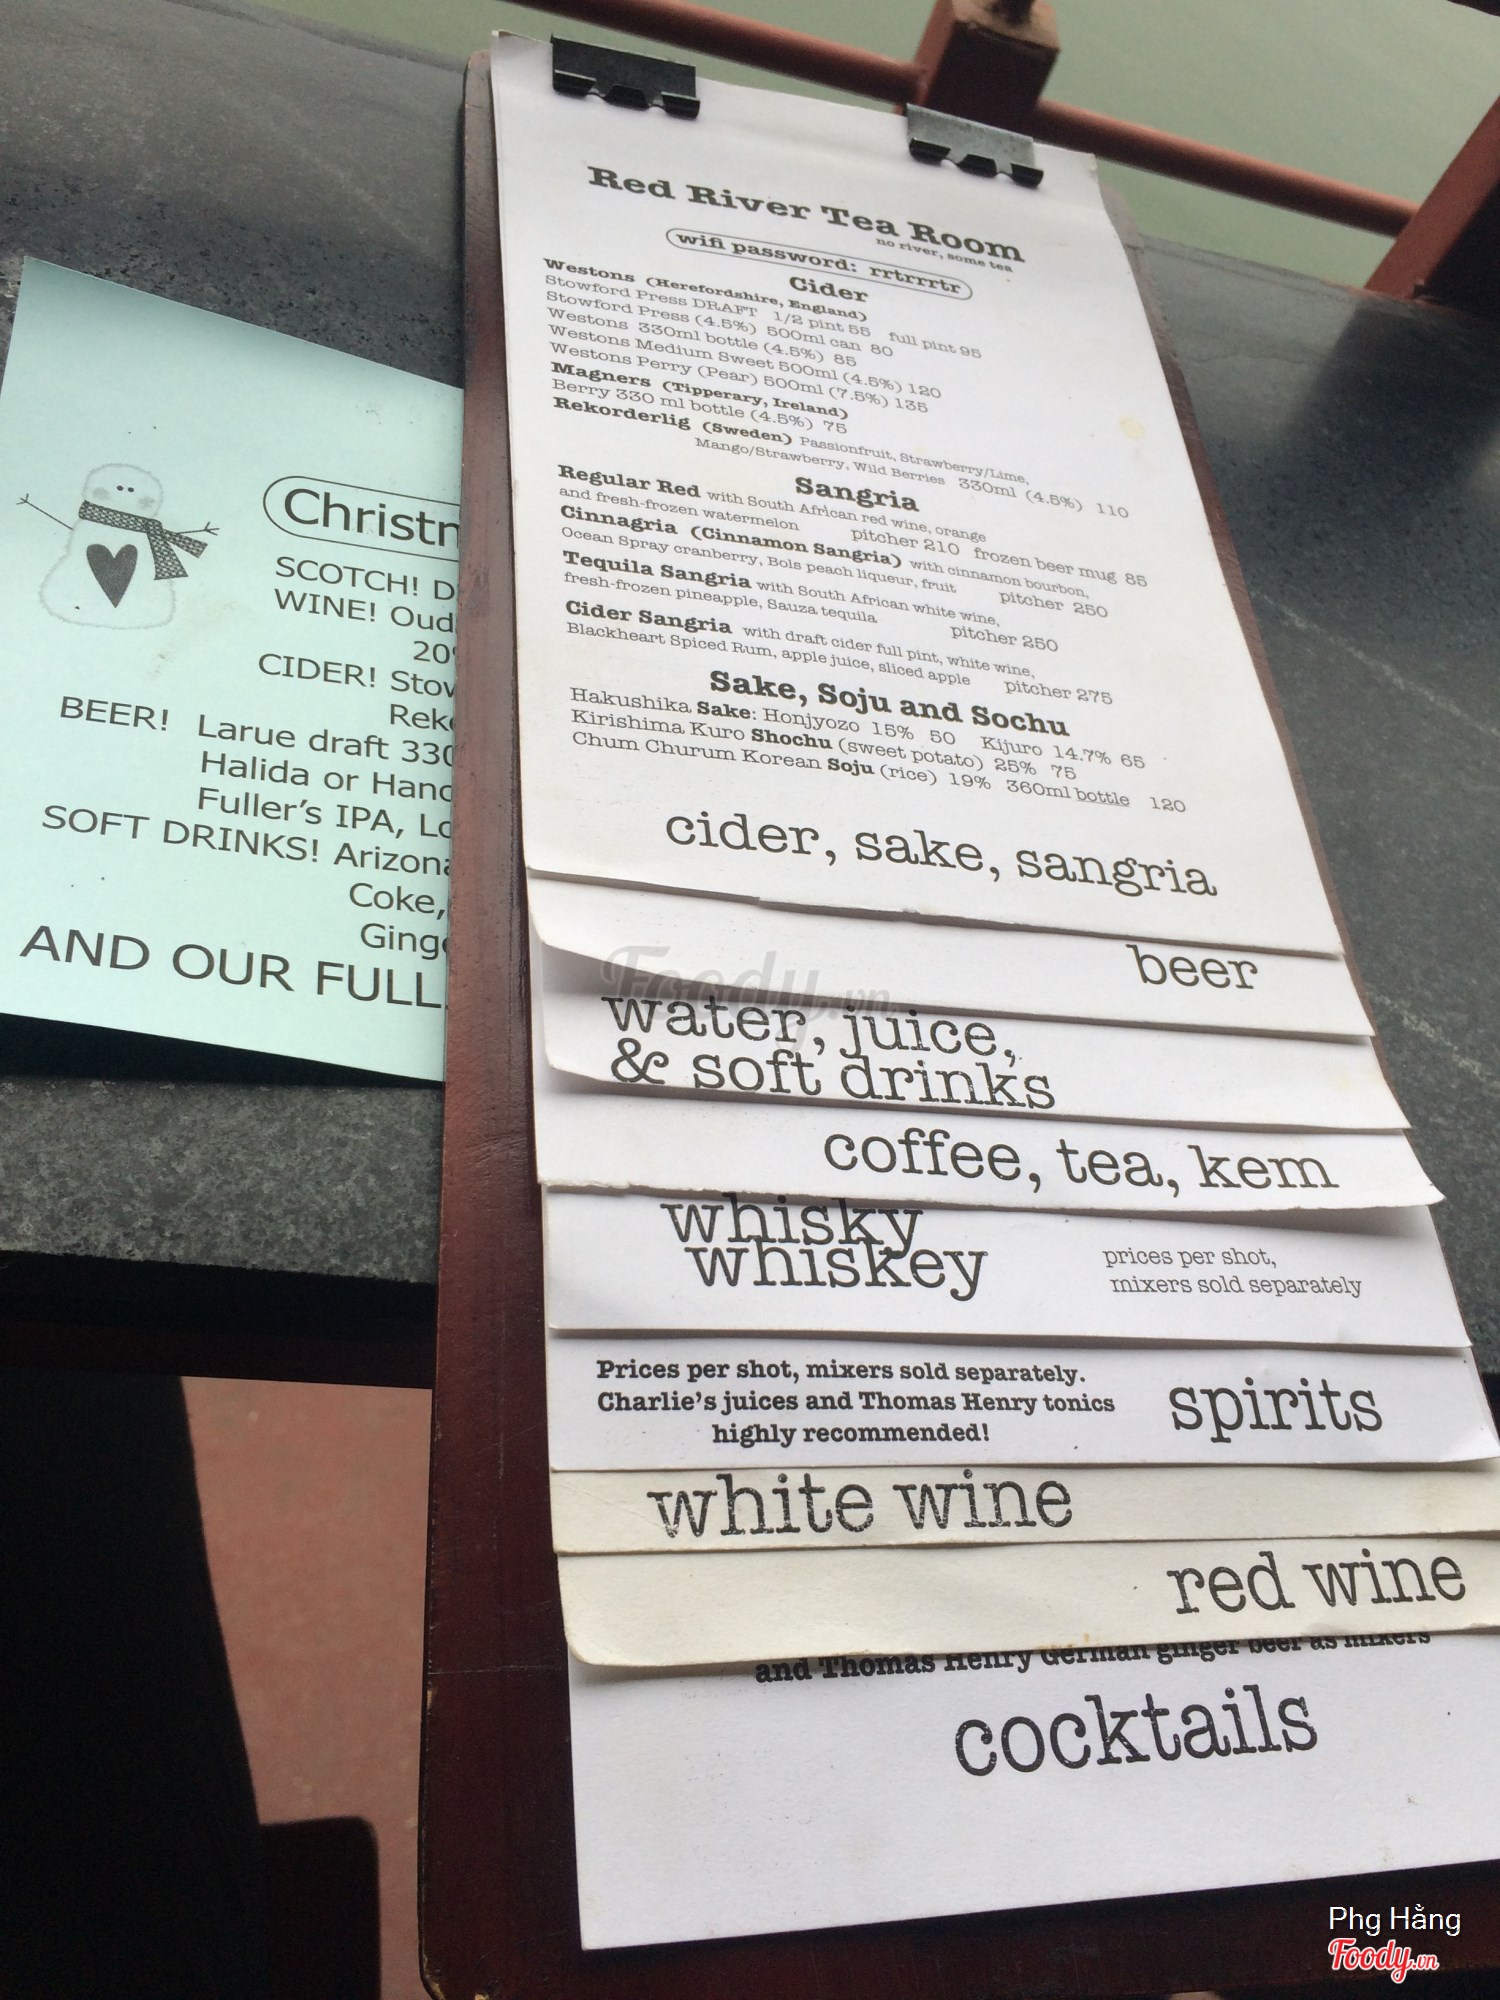 Red River Tea Room
no river, some tea
wifi password: rrtrrrtr
Cider
Westons (Herefordshire, England)
Stowford Press DRAFT 1/2 pint 55 full pint 95
Stowford Press (4.5%) 500ml can 80
Westons 330ml bottle (4.5%) 85
Westons Medium Sweet 500ml (4.5%) 120
Westons Perry (Pear) 500ml (7.5%) 135
Magners (Tipperary, Ireland)
Berry 330 ml bottle (4.5%) 75
Rekorderlig (Sweden) Passionfruit, Strawberry/Lime,
Mango/Strawberry, Wild Berries 330ml (4.5%) 110
Sangria
Regular Red with South African red wine, orange
and fresh-frozen watermelon pitcher 210 frozen beer mug 85
Cinnagria (Cinnamon Sangria) with cinnamon bourbon,
Ocean Spray cranberry, Bols peach liqueur, fruit pitcher 250
Tequila Sangria with South African white wine,
fresh-frozen pineapple, Sauza tequila pitcher 250
Cider Sangria with draft cider full pint, white wine,
Blackheart Spiced Rum, apple juice, sliced apple pitcher 275
Sake, Soju and Sochu
Hakushika Sake: Honjyozo 15% 50 Kijuro 14.7% 65
Kirishima Kuro Shochu (sweet potato) 25% 75
Chum Churum Korean Soju (rice) 19% 360ml bottle 120
cider, sake, sangria
beer
water, juice,
& soft drinks
coffee, tea, kem
whisky
whiskey
prices per shot,
mixers sold separately
Prices per shot, mixers sold separately.
Charlie's juices and Thomas Henry tonics
highly recommended!
spirits
white wine
red wine
and Thomas Henry German ginger beer as mixers
cocktails
Christm
SCOTCH! D
WINE! Oud
20
CIDER! Stow
Reko
BEER! Larue draft 330
Halida or Hano
Fuller's IPA, Lo
SOFT DRINKS! Arizona
Coke,
Ginge
AND OUR FULL
Foody.vn
Phg Hằng
Foody.vn